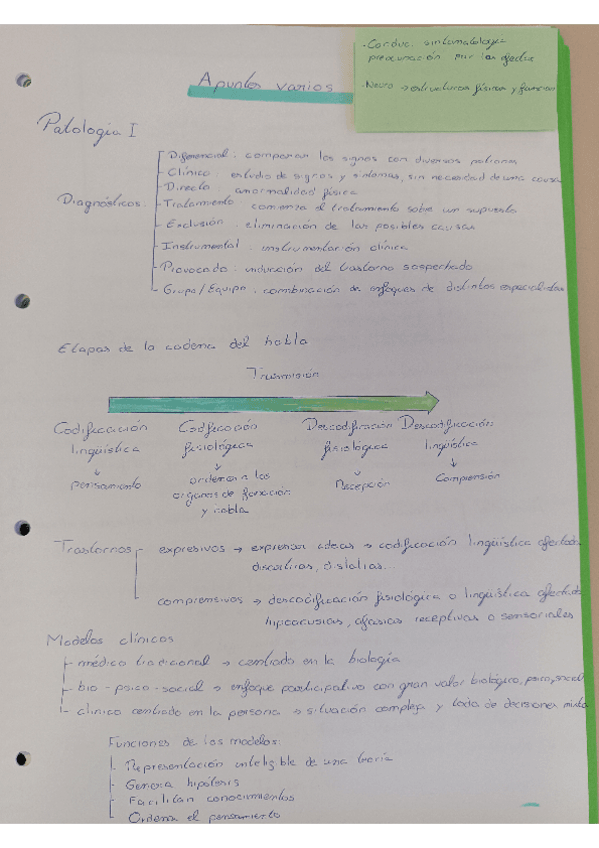 -Conduc: sintomatología
preocupación por los efectos
-Neuro → estructuras físicas y función
Apuntes varios
Patología I
Diagnósticos:
Diferencial: comparar los signos con diversas patologías
Clínico: estudio de signos y síntomas, sin necesidad de una causa
Directo: anormalidad física
Tratamiento: comienza el tratamiento sobre un supuesto
Exclusión: eliminación de las posibles causas
Instrumental: instrumentación clínica
Provocado: inducción del trastorno sospechado
Grupo/Equipo: combinación de enfoques de distintos especialistas
Etapas de la cadena del habla
Transmisión
Codificación Codificación Descodificación Descodificación
lingüística fisiológica fisiológica lingüística
↓ ↓ ↓ ↓
pensamiento ordenan a los Recepción Comprensión
órganos de fonación
y habla
Trastornos expresivos → expresar ideas → codificación lingüística afectada
disartrias, dislalias...
comprensivos → descodificación fisiológica o lingüística afectada
hipoacusias, afasias receptivas o sensoriales
Modelos clínicos
- médico tradicional → centrado en la biología
- bio-psico-social → enfoque participativo con gran valor biológico, psico, social
- clínico centrado en la persona → situación compleja y toma de decisiones mixta
Funciones de los modelos:
- Representación inteligible de una teoría
- Genera hipótesis
- Facilitan conocimientos
- Ordena el pensamiento